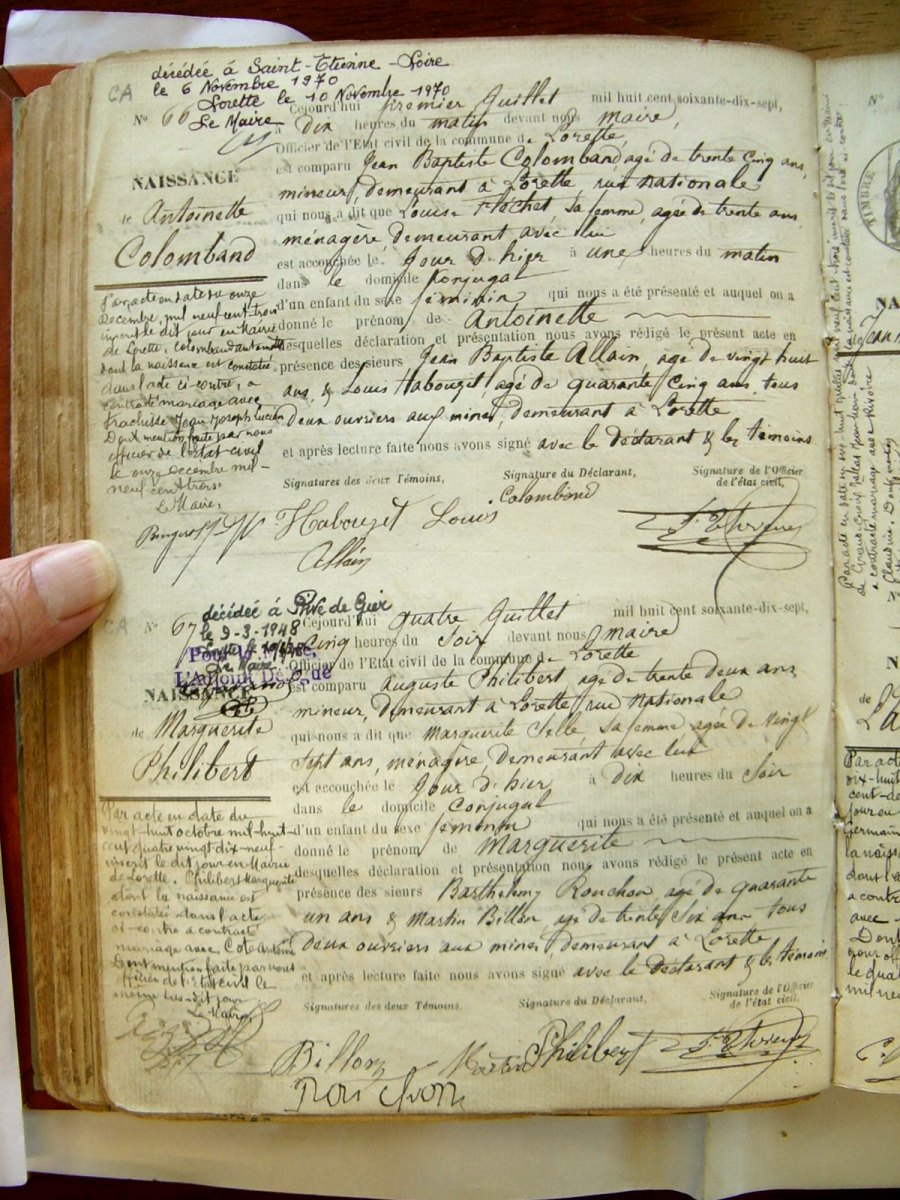 CA
décédée à Saint-Etienne - Loire
le 6 Novembre 1970
Lorette le 10 Novembre 1970
Le Maire
N° 66
NAISSANCE
de Antoinette
Colomband
Par acte en date du onze
Decembre mil neuf cent trois
inscrit le dit jour en Mairie
de Lorette, Colomband Antoinette
dont la naissance est constatée
dans l'acte ci-contre, a
contracté mariage avec
Jean Joseph Lucien
Dont mention faite par nous
officier de l'état-civil
le onze Decembre mil-
neuf cent trois.
Le Maire,
Cejourd'hui premier Juillet mil huit cent soixante-dix-sept,
à Dix heures du matin devant nous maire,
Officier de l'Etat civil de la commune de Lorette,
est comparu Jean Baptiste Colomband, agé de trente cinq ans,
mineur, demeurant à Lorette, rue nationale
qui nous a dit que Louise Fléchet, sa femme, agée de trente ans
ménagère, demeurant avec lui
est accouchée le Jour d'hier à une heures du matin
dans le domicile Conjugal
d'un enfant du sexe féminin qui nous a été présenté et auquel on a
donné le prénom de Antoinette
desquelles déclaration et présentation nous avons rédigé le présent acte en
présence des sieurs Jean Baptiste Allain, agé de vingt huit
ans, & Louis Habouzet, agé de quarante Cinq ans, tous
deux ouvriers aux mines, demeurant à Lorette
et après lecture faite nous avons signé avec le Déclarant & les témoins
Signatures des deux Témoins,
Signature du Déclarant,
Signature de l'Officier
de l'état civil,
Colomband
Habouzet Louis
Allain
CA
N° 67
décédée à Rive de Gier
le 9-3-1948
Le Maire
Pour le Maire,
L'Adjoint Délégué
NAISSANCE
de Marguerite
Philibert
Par acte en date du
vingt-huit octobre mil-huit-
cent quatre vingt-dix-neuf-
inscrit le dit jour en Mairie
de Lorette, Philibert Marguerite
dont la naissance est
constatée dans l'acte
ci-contre a contracté
mariage avec Cote Antoine
Dont mention faite par nous
officier de l'état civil le
même sus-dit jour
Le Maire
Cejourd'hui quatre Juillet mil huit cent soixante-dix-sept,
à Cinq heures du Soir devant nous maire
Officier de l'Etat civil de la commune de Lorette
est comparu Auguste Philibert agé de trente deux ans,
mineur, demeurant à Lorette, rue nationale
qui nous a dit que Marguerite sa femme, agée de vingt
sept ans, ménagère, demeurant avec lui
est accouchée le Jour d'hier à Dix heures du Soir
dans le domicile Conjugal
d'un enfant du sexe féminin qui nous a été présenté et auquel on a
donné le prénom de Marguerite
desquelles déclaration et présentation nous avons rédigé le présent acte en
présence des sieurs Barthélemy Ronchon agé de quarante
un ans & Martin Billon agé de trente Six ans tous
deux ouvriers aux mines, demeurant à Lorette
et après lecture faite nous avons signé avec le Déclarant & les témoins
Signatures des deux Témoins.
Signature du Déclarant,
Signature de l'Officier
de l'état civil,
Billon Martin
Philibert
Ronchon
N°
TIMBRE